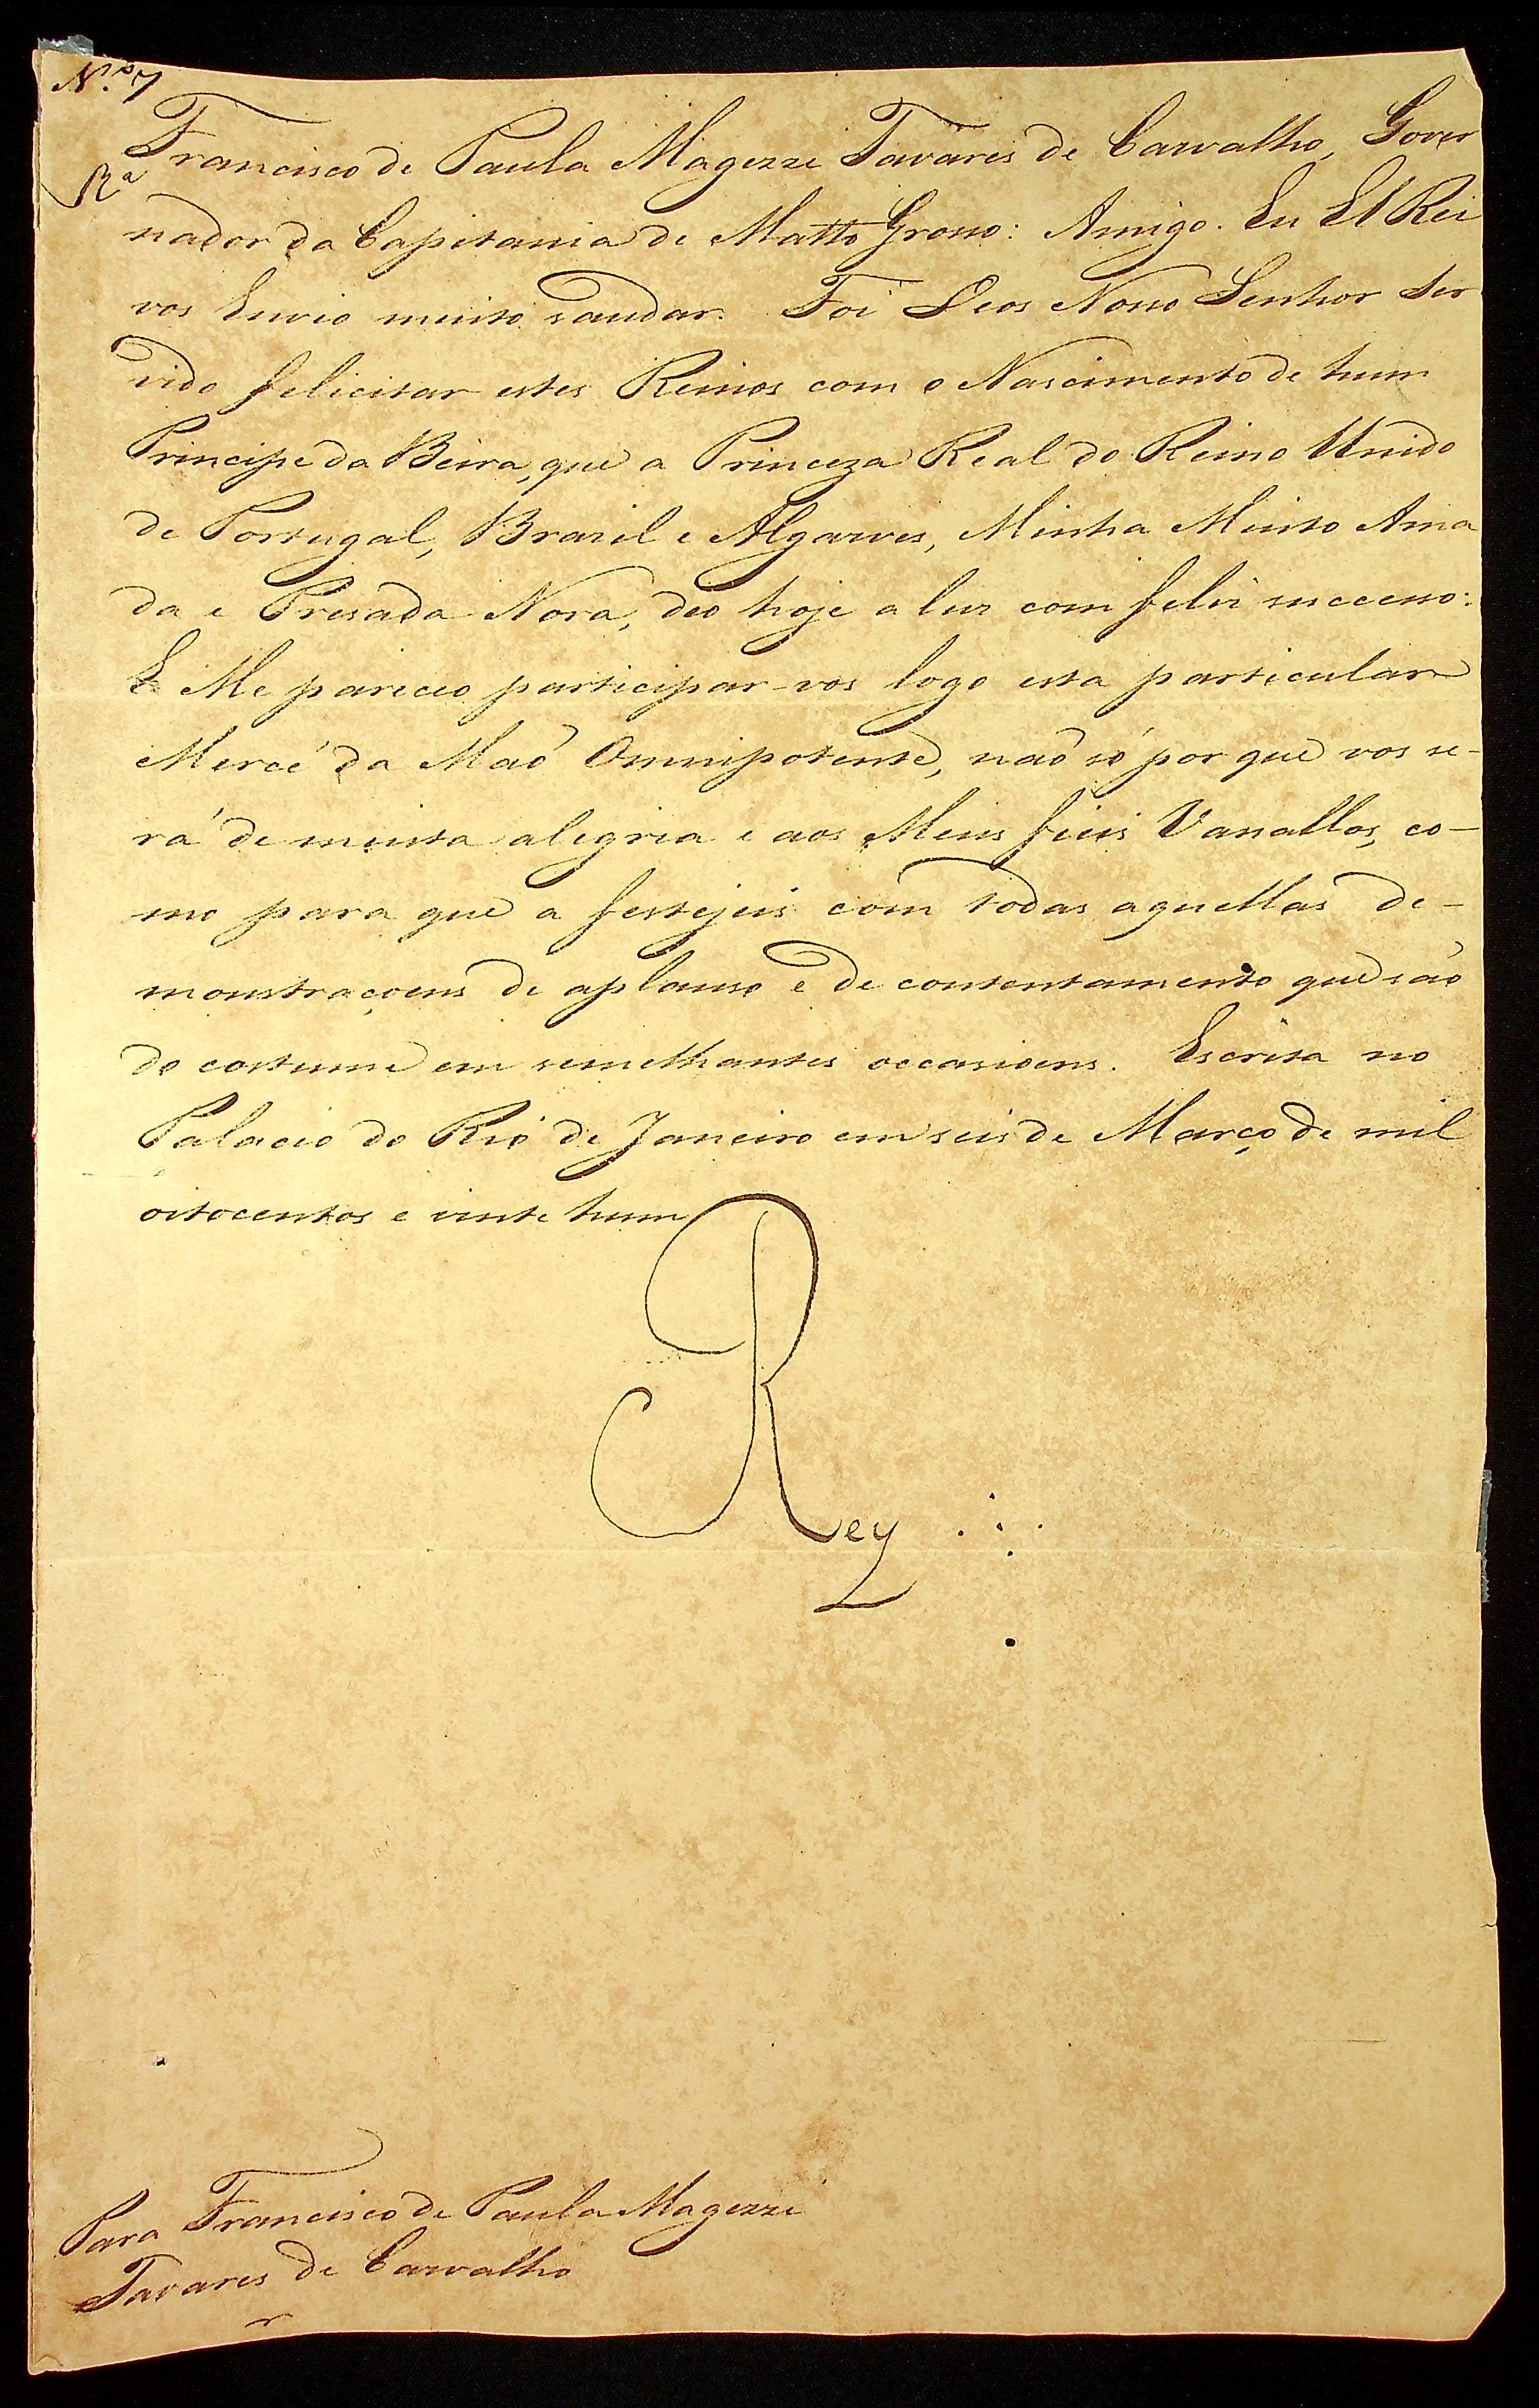 N.º 7
R.ª
Francisco de Paula Magezzi Tavares de Carvalho, Gover
nador da Capitania de Matto Grosso: Amigo. Eu El Rei
vos Envio muito saudar. Foi Deos Nosso Senhor ser
vido felicitar estes Reinos com o Nascimento de hum
Principe da Beira, que a Princeza Real do Reino Unido
de Portugal, Brazil e Algarves, Minha Muito Ama
da e Presada Nora, deo hoje a luz com feliz successo:
E Me pareceo participar-vos logo esta particular
Mercé da Maõ Omnipotente, naõ só por que vos se-
rá de muita alegria e aos Meus fieis Vassallos, co-
mo para que a festejeis com todas aquellas de-
monstraçoens de aplauso e de contentamento que são
do costume em semelhantes occasioens. Escrita no
Palacio do Rio de Janeiro em seis de Março de mil
oitocentos e vinte hum
Rey
Para Francisco de Paula Magezzi
Tavares de Carvalho